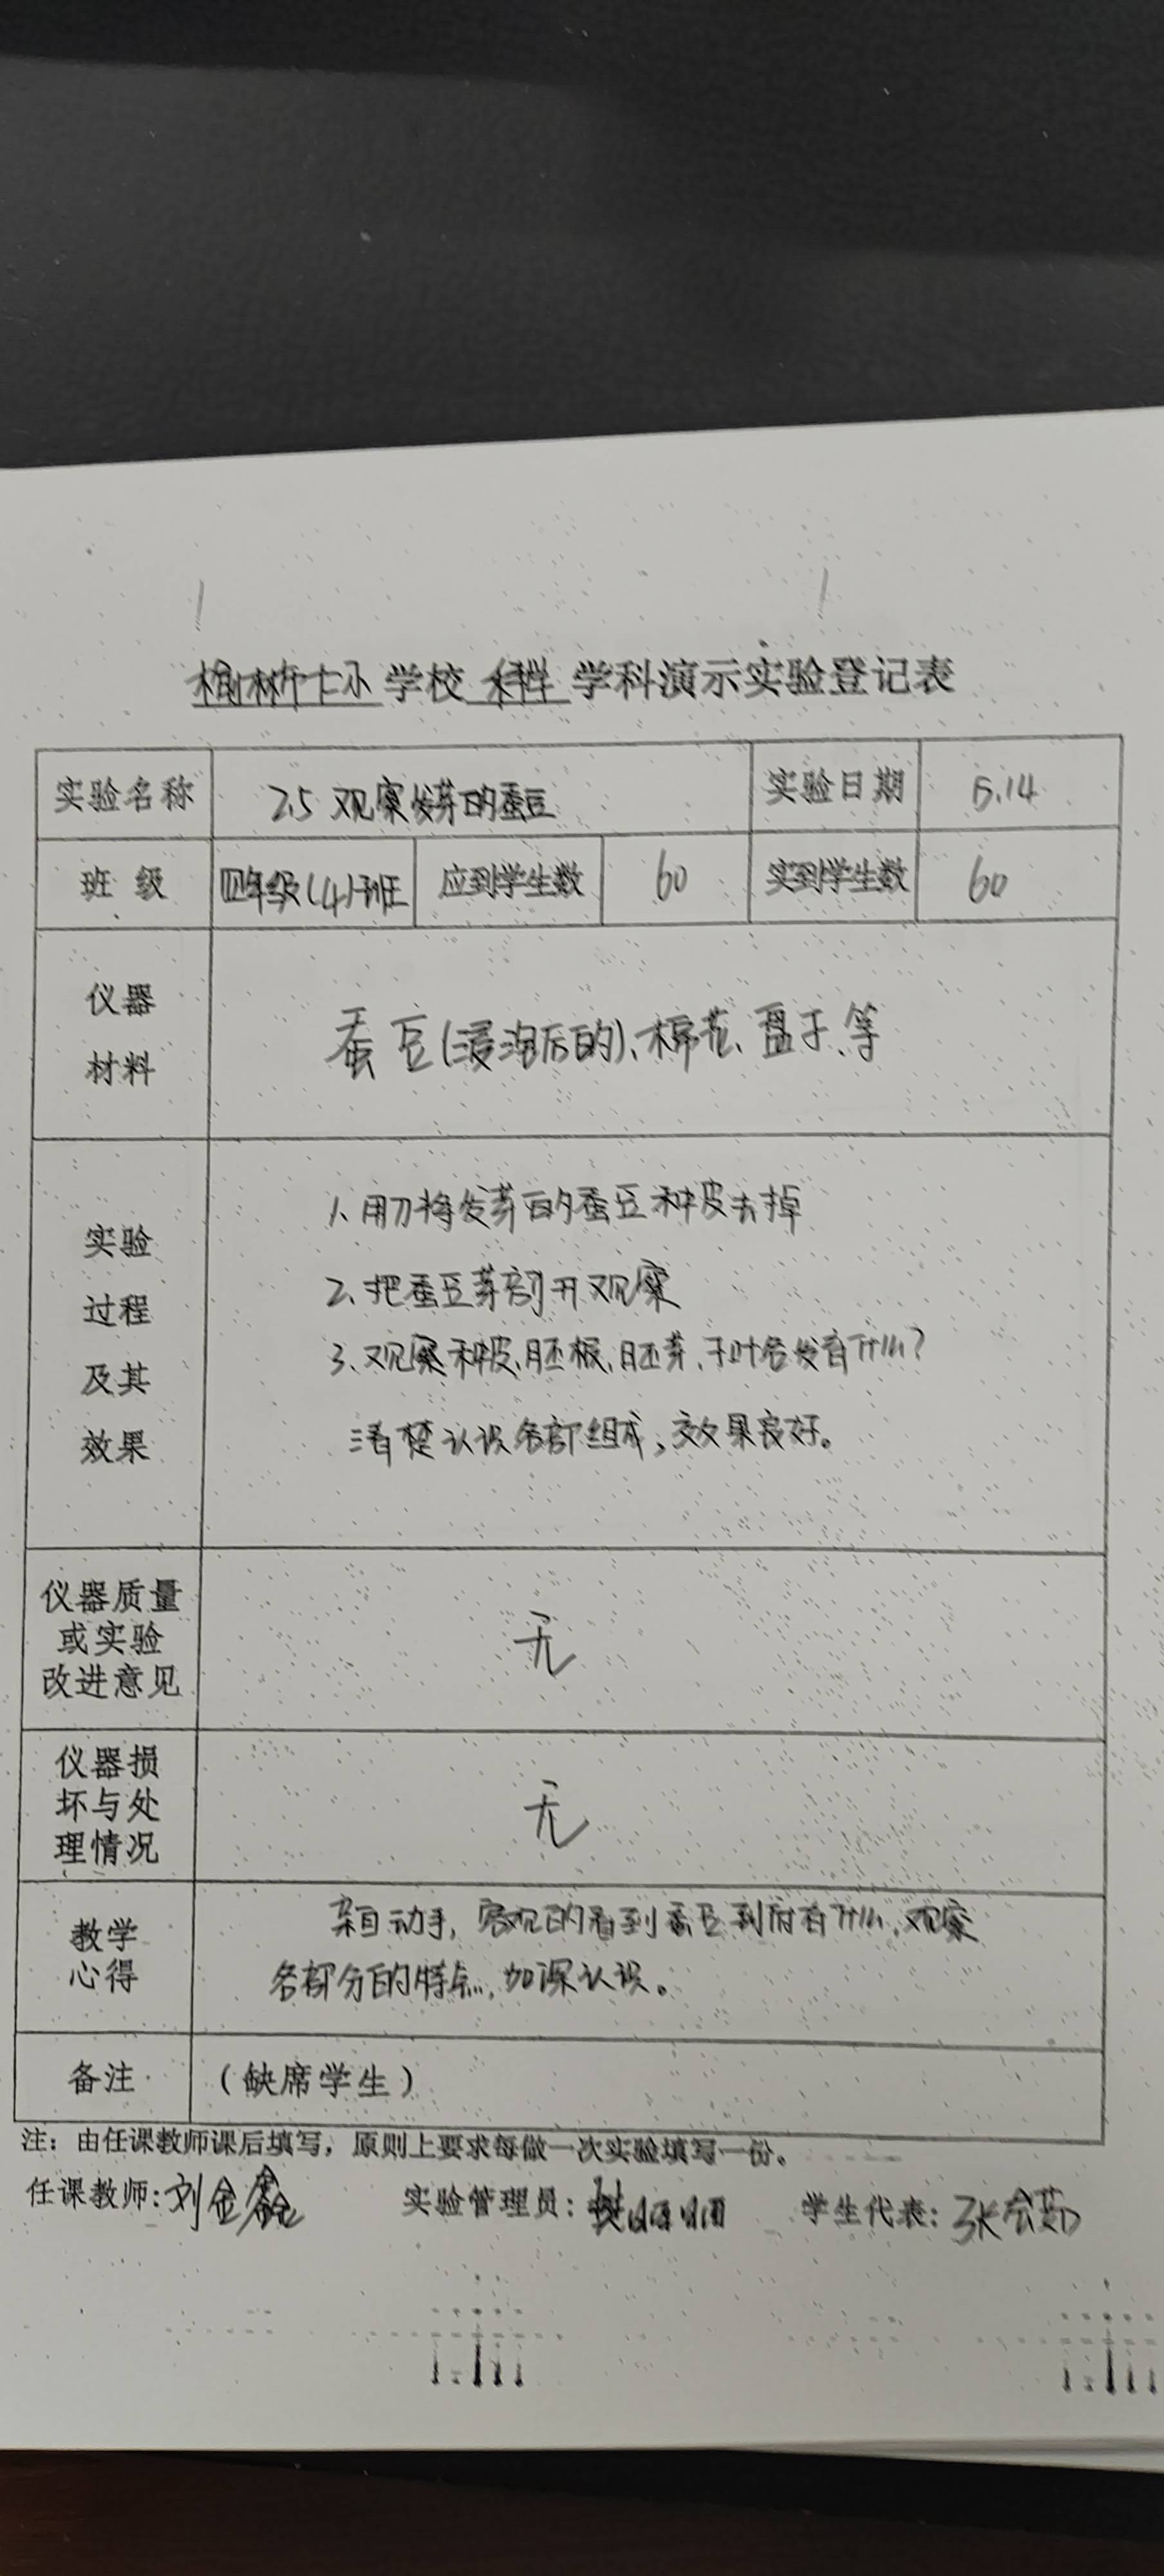 榆林市七小 学校 科学 学科演示实验登记表
实验名称 2.5 观察发芽的蚕豆 实验日期 5.14
班 级 四年级(4)班 应到学生数 60 实到学生数 60
仪器
材料
蚕豆(浸泡后的)、棉花、盘子、等
实验
过程
及其
效果
1、用刀将发芽的蚕豆种皮去掉
2、把蚕豆芽剖开观察
3、观察种皮、胚根、胚芽、子叶各发育什么?
清楚认识各部组成,效果良好。
仪器质量
或实验
改进意见
无
仪器损
坏与处
理情况
无
教学
心得
亲自动手,客观的看到蚕豆到府有什么,观察
各部分的特点,加深认识。
备注 (缺席学生)
注:由任课教师课后填写,原则上要求每做一次实验填写一份。
任课教师:刘金鑫 实验管理员: 学生代表:张